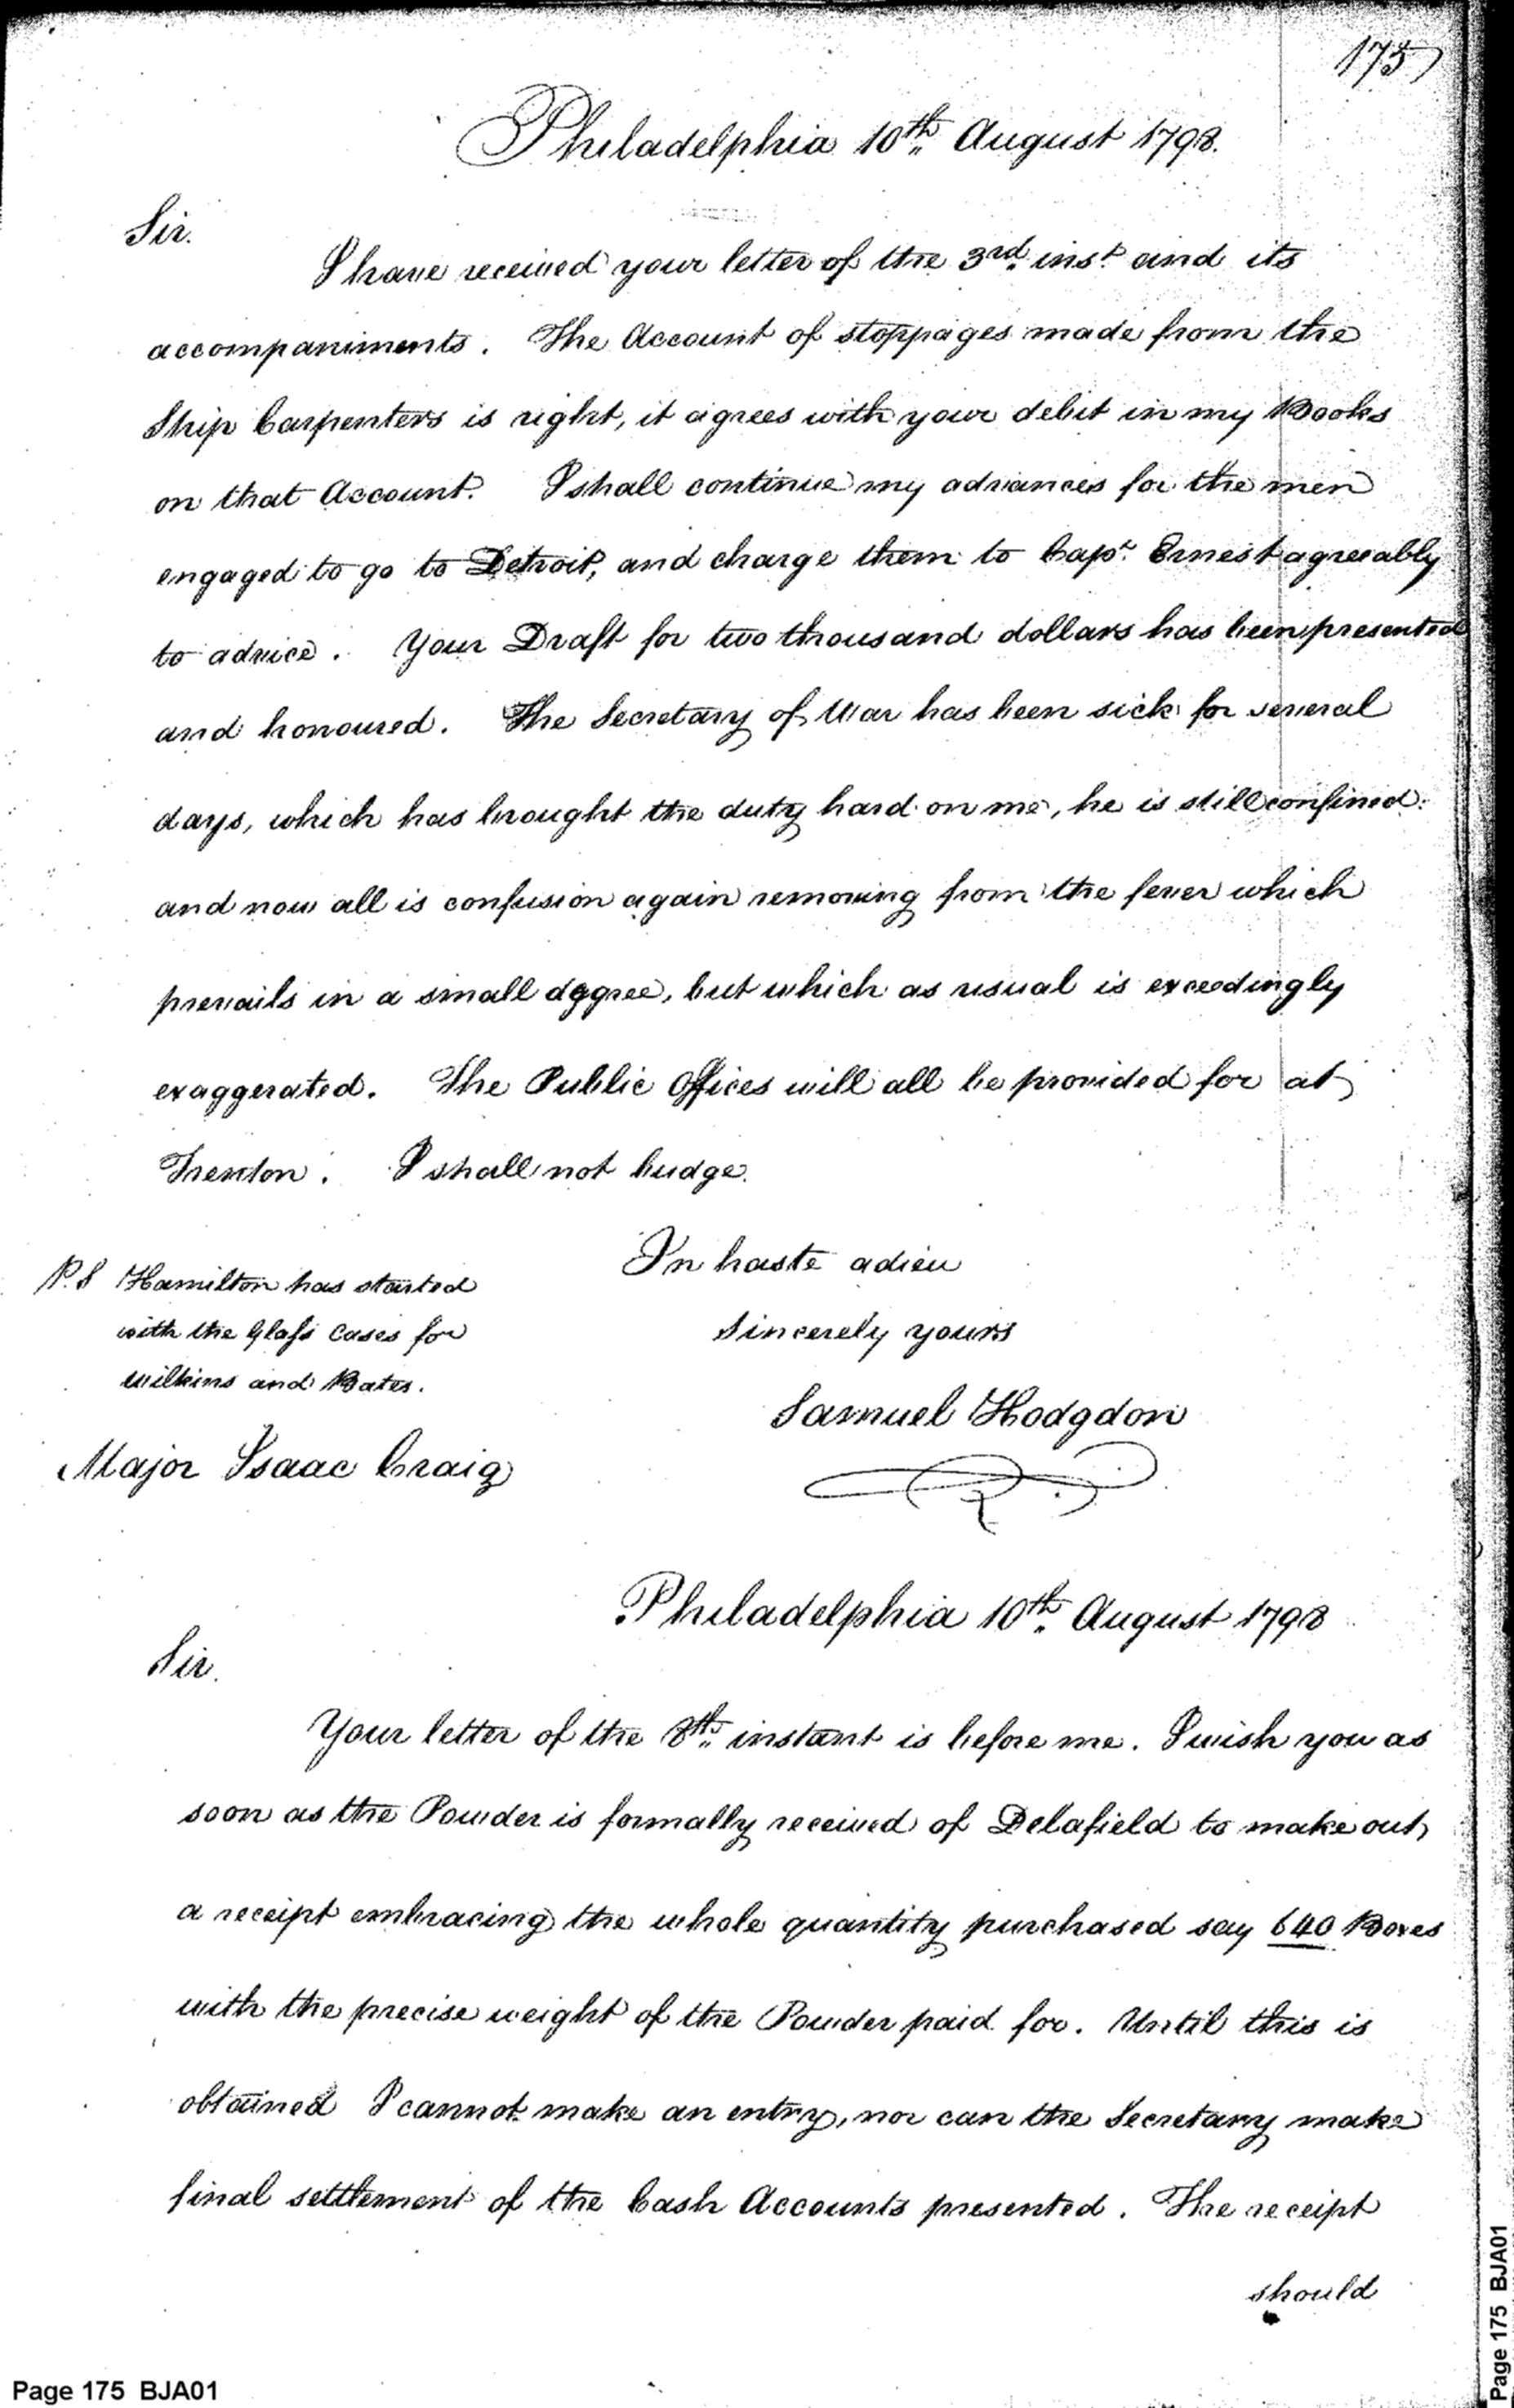 175
Philadelphia 10th August 1798.
Sir.
I have received your letter of the 3rd inst and its
accompaniments. The Account of stoppages made from the
Ship Carpenters is right, it agrees with your debit in my Books
on that Account. I shall continue my advances for the men
engaged to go to Detroit, and charge them to Capt. Ernest agreeably
to advice. Your Draft for two thousand dollars has been presented
and honoured. The Secretary of War has been sick for several
days, which has brought the duty hard on me, he is still confined:
and now all is confusion again removing from the fever which
prevails in a small deggree, but which as usual is exceedingly
exaggerated. The Public Offices will all be provided for at
Trenton. I shall not budge.
In haste adieu
Sincerely yours
Samuel Hodgdon
P.S Hamilton has started
with the Glass Cases for
Wilkins and Bates.
Major Isaac Craig
Philadelphia 10th August 1798
Sir.
Your letter of the 8th instant is before me. I wish you as
soon as the Powder is formally received of Delafield to make out
a receipt embracing the whole quantity purchased say 640 Boxes
with the precise weight of the Powder paid for. Until this is
obtained I cannot make an entry, nor can the Secretary make
final settlement of the Cash Accounts presented. The receipt
should
Page 175 BJA01
Page 175 BJA01